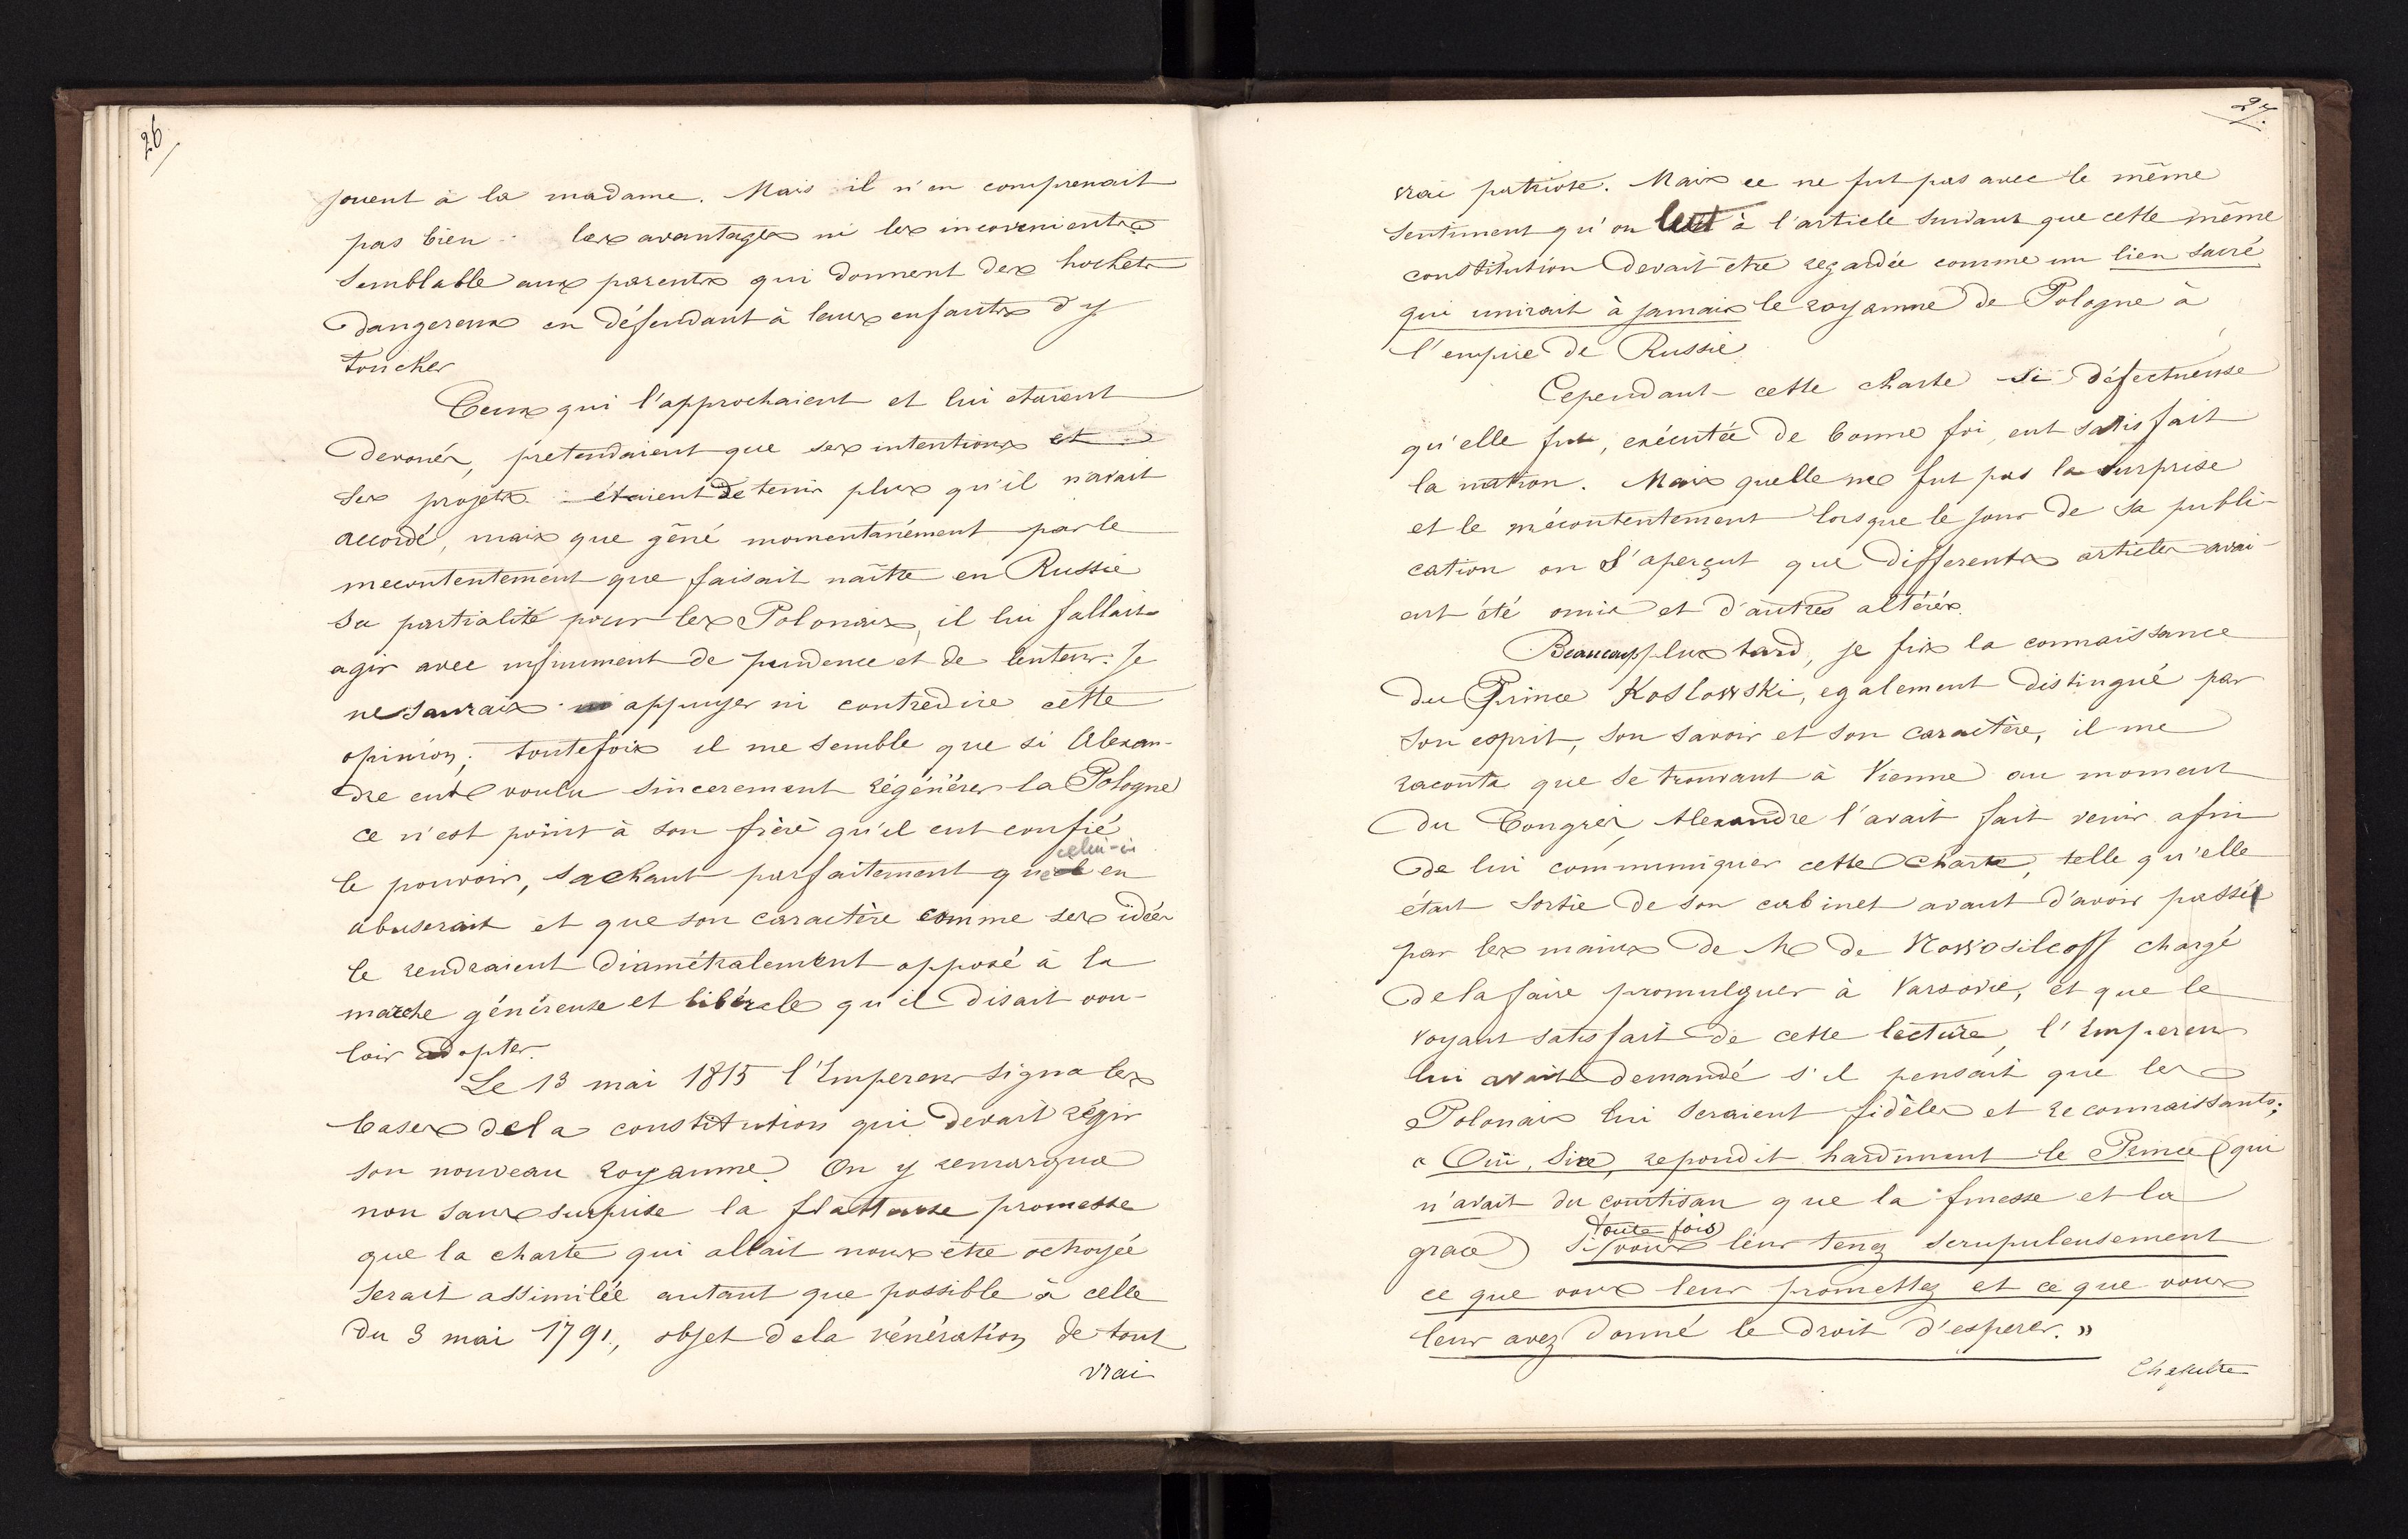 26
jouent à la madame. Mais il n'en comprenait
pas bien les avantages ni les inconvenients
semblable aux parents qui donnent des hochets
dangereux en défendant à leurs enfants d'y
toucher
Ceux qui l'approchaient et lui etaient
devoués, pretendaient que ses intentions et
ses projets étaient de tenir plus qu'il n'avait
accordé, mais que gêné momentanément par le
mecontentement que faisait naître en Russie
sa partialité pour les Polonais, il lui fallait
agir avec infiniment de prudence et de lenteur. Je
ne saurais ni appuyer ni contredire cette
opinion; toutefois il me semble que si Alexan-
dre eut voulu sincerement régénérer la Pologne
ce n'est point à son frère qu'il eut confié
le pouvoir, sachant parfaitement que celui-ci en
abuserait et que son caractère comme ses idées
le rendraient diamétralement opposé à la
marche généreuse et libérale qu'il disait vou-
loir adopter.
Le 13 mai 1815 l'Empereur signa les
bases de la constitution qui devait régir
son nouveau royaume. On y remarqua
non sans surprise la flatteuse promesse
que la charte qui allait nous être octroyée
serait assimilée autant que possible à celle
du 3 mai 1791, objet de la vénération de tout
vrai
27.
vrai patriote. Mais ce ne fut pas avec le même
sentiment qu'on lut à l'article suivant que cette même
constitution devait être regardée comme un lien sacré
qui unirait à jamais le royaume de Pologne à
l'empire de Russie
Cependant cette charte si défectueuse
qu'elle fut, exécutée de bonne foi, eut satisfait
la nation. Mais quelle ne fut pas la surprise
et le mécontentement lorsque le jour de sa publi-
cation on s'aperçut que differents articles avai-
ent été omis et d'autres altérés.
Beaucoup plus tard, je fis la connaissance
du Prince Koslowski, egalement distingué par
son esprit, son savoir et son caractère, il me
raconta que se trouvant à Vienne au moment
du Congrès, Alexandre l'avait fait venir afin
de lui communiquer cette charte, telle qu'elle
était sortie de son cabinet avant d'avoir passé
par les mains de M de Nowosilcoff chargé
de la faire promulguer à Varsovie, et que le
voyant satisfait de cette lecture, l'Empereur
lui avait demandé s'il pensait que les
Polonais lui seraient fidèles et reconnaissants;
« Oui, Sire, repondit hardiment le Prince (qui
n'avait du courtisan que la finesse et la
grace) si toute fois vous leur tenez scrupuleusement
ce que vous leur promettez et ce que vous
leur avez donné le droit d'esperer. »
Chapitre